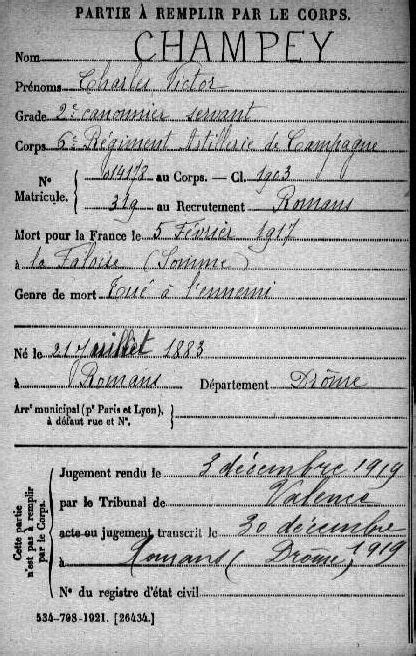 PARTIE À REMPLIR PAR LE CORPS.
Nom CHAMPEY
Prénoms Charles Victor
Grade 2e canonnier servant
Corps 6e Régiment Artillerie de Campagne
N° Matricule. 014178 au Corps. — Cl. 1903
319 au Recrutement Romans
Mort pour la France le 5 Février 1917
à la Faloise (Somme)
Genre de mort Tué à l'ennemi
Né le 21 Juillet 1883
à Romans Département Drôme
Arrt municipal (pr Paris et Lyon),
à défaut rue et N°.
Cette partie n'est pas à remplir par le Corps.
Jugement rendu le 3 décembre 1919
par le Tribunal de Valence
acte ou jugement transcrit le 30 décembre
à Romans (Drôme) 1919
N° du registre d'état civil
534-708-1921. [26434.]